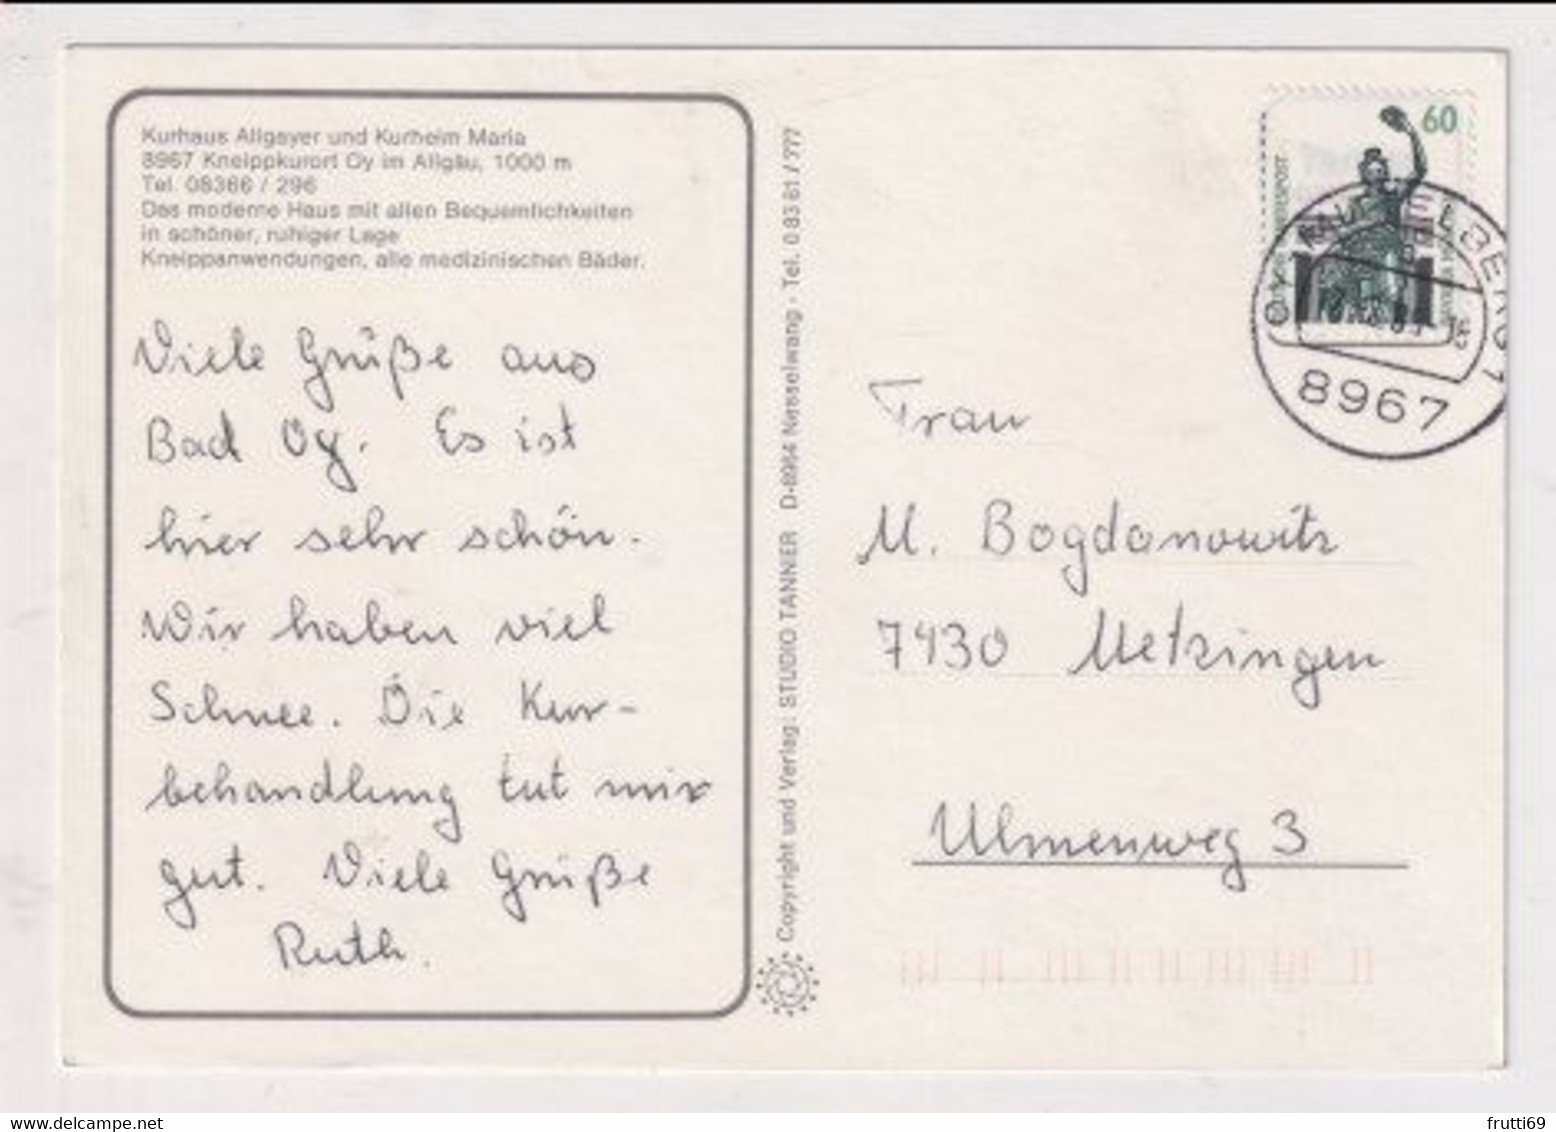 Kurhaus Allgayer und Kurheim Maria
8967 Kneippkurort Oy im Allgäu, 1000 m
Tel. 08366 / 296
Das moderne Haus mit allen Bequemlichkeiten
in schöner, ruhiger Lage
Kneippanwendungen, alle medizinischen Bäder.
Viele Grüße aus
Bad Oy. Es ist
hier sehr schön.
Wir haben viel
Schnee. Die Kur-
behandlung tut mir
gut. Viele Grüße
Ruth.
Copyright und Verlag: STUDIO TANNER D-8964 Nesselwang - Tel. 0 83 61 / 777
60
8967
Frau
M. Bogdanowitz
7430 Metzingen
Ulmenweg 3
frutti69